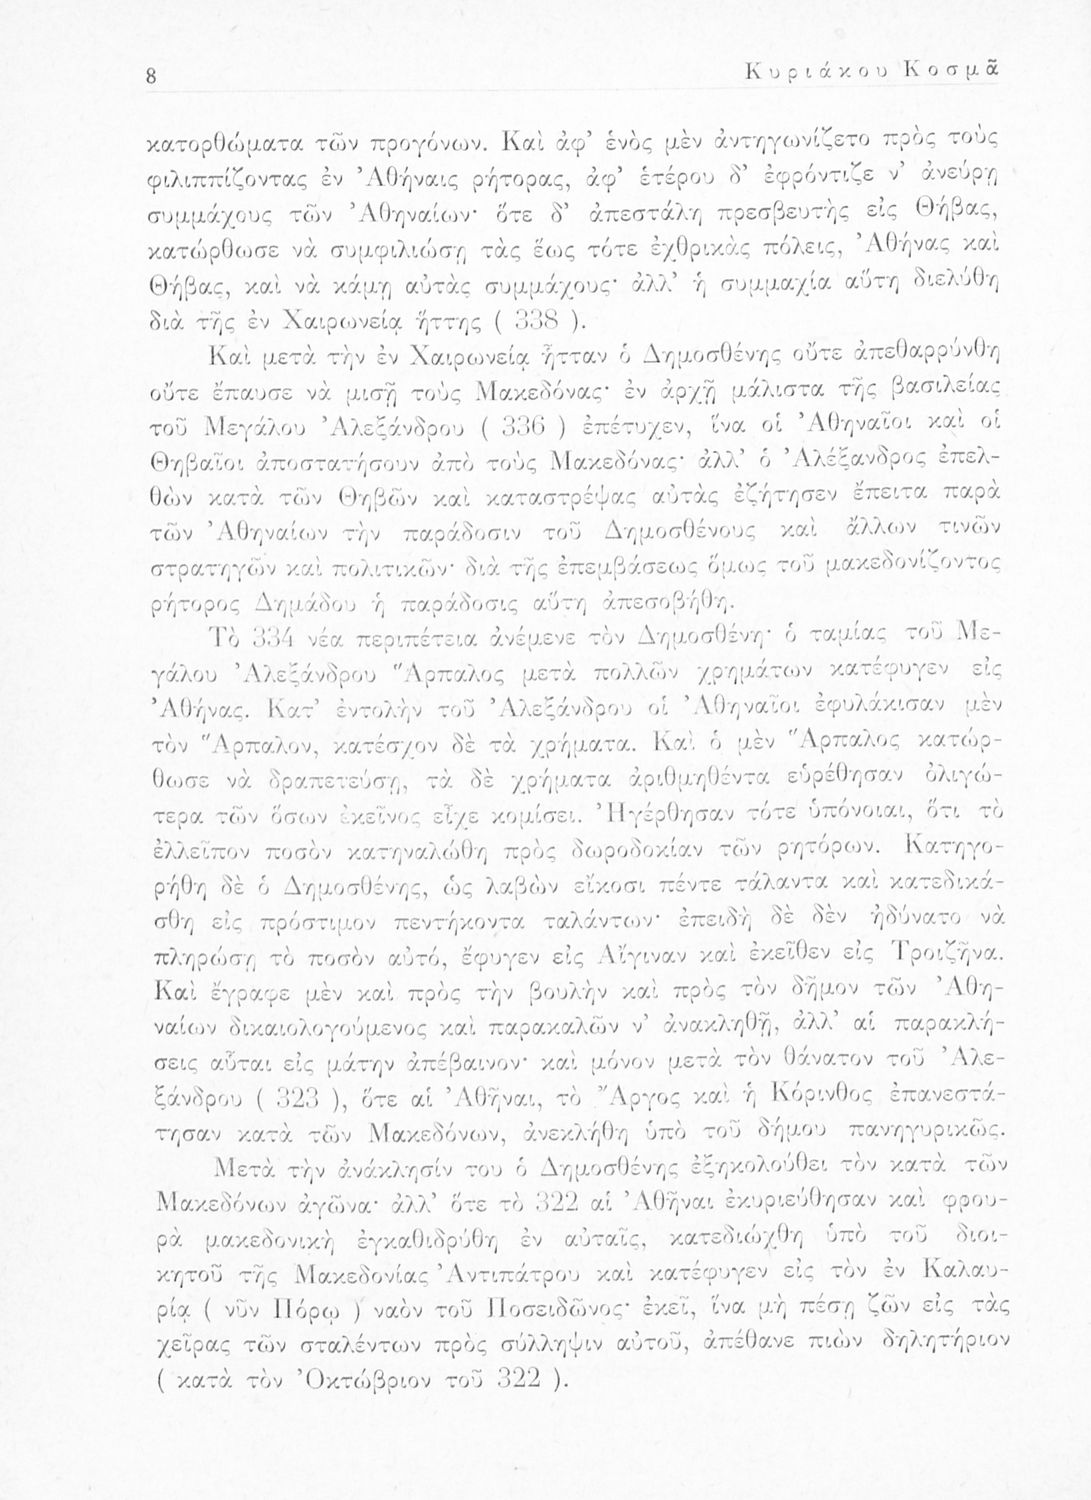 8
Κυριάκου Κοσμᾶ
κατορθώματα τῶν προγόνων. Καὶ ἀφ’ ἑνὸς μὲν ἀντηγωνίζετο πρὸς τοὺς
φιλιππίζοντας ἐν Ἀθήναις ρήτορας, ἀφ’ ἑτέρου δ’ ἐφρόντιζε ν’ ἀνεύρῃ
συμμάχους τῶν Ἀθηναίων· ὅτε δ’ ἀπεστάλη πρεσβευτὴς εἰς Θήβας,
κατώρθωσε νὰ συμφιλιώσῃ τὰς ἕως τότε ἐχθρικὰς πόλεις, Ἀθήνας καὶ
Θήβας, καὶ νὰ κάμῃ αὐτὰς συμμάχους· ἀλλ’ ἡ συμμαχία αὕτη διελύθη
διὰ τῆς ἐν Χαιρωνείᾳ ἥττης ( 338 ).
Καὶ μετὰ τὴν ἐν Χαιρωνείᾳ ἧτταν ὁ Δημοσθένης οὔτε ἀπεθαρρύνθη
οὔτε ἔπαυσε νὰ μισῇ τοὺς Μακεδόνας· ἐν ἀρχῇ μάλιστα τῆς βασιλείας
τοῦ Μεγάλου Ἀλεξάνδρου ( 336 ) ἐπέτυχεν, ἵνα οἱ Ἀθηναῖοι καὶ οἱ
Θηβαῖοι ἀποστατήσουν ἀπὸ τοὺς Μακεδόνας· ἀλλ’ ὁ Ἀλέξανδρος ἐπελ-
θὼν κατὰ τῶν Θηβῶν καὶ καταστρέψας αὐτὰς ἐζήτησεν ἔπειτα παρὰ
τῶν Ἀθηναίων τὴν παράδοσιν τοῦ Δημοσθένους καὶ ἄλλων τινῶν
στρατηγῶν καὶ πολιτικῶν· διὰ τῆς ἐπεμβάσεως ὅμως τοῦ μακεδονίζοντος
ρήτορος Δημάδου ἡ παράδοσις αὕτη ἀπεσοβήθη.
Τὸ 334 νέα περιπέτεια ἀνέμενε τὸν Δημοσθένη· ὁ ταμίας τοῦ Με-
γάλου Ἀλεξάνδρου Ἅρπαλος μετὰ πολλῶν χρημάτων κατέφυγεν εἰς
Ἀθήνας. Κατ’ ἐντολὴν τοῦ Ἀλεξάνδρου οἱ Ἀθηναῖοι ἐφυλάκισαν μὲν
τὸν Ἅρπαλον, κατέσχον δὲ τὰ χρήματα. Καὶ ὁ μὲν Ἅρπαλος κατώρ-
θωσε νὰ δραπετεύσῃ, τὰ δὲ χρήματα ἀριθμηθέντα εὑρέθησαν ὀλιγώ-
τερα τῶν ὅσων ἐκεῖνος εἶχε κομίσει. Ἠγέρθησαν τότε ὑπόνοιαι, ὅτι τὸ
ἐλλεῖπον ποσὸν κατηναλώθη πρὸς δωροδοκίαν τῶν ρητόρων. Κατηγο-
ρήθη δὲ ὁ Δημοσθένης, ὡς λαβὼν εἴκοσι πέντε τάλαντα καὶ κατεδικά-
σθη εἰς πρόστιμον πεντήκοντα ταλάντων· ἐπειδὴ δὲ δὲν ἠδύνατο νὰ
πληρώσῃ τὸ ποσὸν αὐτό, ἔφυγεν εἰς Αἴγιναν καὶ ἐκεῖθεν εἰς Τροιζῆνα.
Καὶ ἔγραφε μὲν καὶ πρὸς τὴν βουλὴν καὶ πρὸς τὸν δῆμον τῶν Ἀθη-
ναίων δικαιολογούμενος καὶ παρακαλῶν ν’ ἀνακληθῇ, ἀλλ’ αἱ παρακλή-
σεις αὗται εἰς μάτην ἀπέβαινον· καὶ μόνον μετὰ τὸν θάνατον τοῦ Ἀλε-
ξάνδρου ( 323 ), ὅτε αἱ Ἀθῆναι, τὸ Ἄργος καὶ ἡ Κόρινθος ἐπανεστά-
τησαν κατὰ τῶν Μακεδόνων, ἀνεκλήθη ὑπὸ τοῦ δήμου πανηγυρικῶς.
Μετὰ τὴν ἀνάκλησίν του ὁ Δημοσθένης ἐξηκολούθει τὸν κατὰ τῶν
Μακεδόνων ἀγῶνα· ἀλλ’ ὅτε τὸ 322 αἱ Ἀθῆναι ἐκυριεύθησαν καὶ φρου-
ρὰ μακεδονικὴ ἐγκαθιδρύθη ἐν αὐταῖς, κατεδιώχθη ὑπὸ τοῦ διοι-
κητοῦ τῆς Μακεδονίας Ἀντιπάτρου καὶ κατέφυγεν εἰς τὸν ἐν Καλαυ-
ρίᾳ ( νῦν Πόρῳ ) ναὸν τοῦ Ποσειδῶνος· ἐκεῖ, ἵνα μὴ πέσῃ ζῶν εἰς τὰς
χεῖρας τῶν σταλέντων πρὸς σύλληψιν αὐτοῦ, ἀπέθανε πιὼν δηλητήριον
( κατὰ τὸν Ὀκτώβριον τοῦ 322 ).